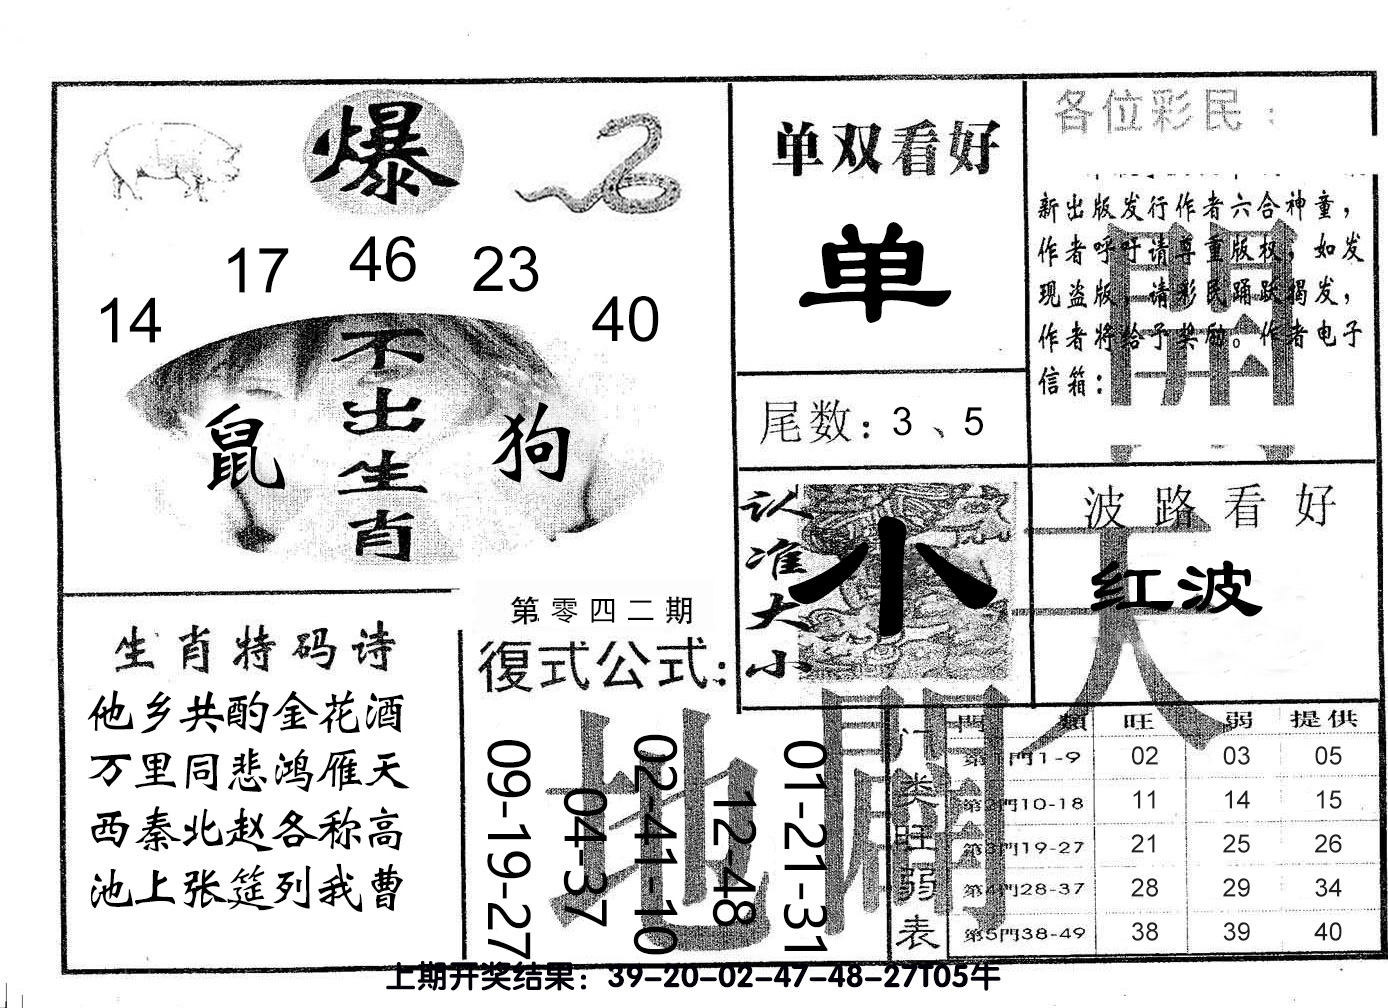 爆
14
17
46
23
40
不出生肖
鼠
狗
生肖特码诗
他乡共酌金花酒
万里同悲鸿雁天
西秦北赵各称高
池上张筵列我曹
第零四二期
復式公式：
09-19-27
04-37
02-41-10
12-48
01-21-31
单双看好
单
尾数：3、5
认准大小
小
各位彩民：
新出版发行作者六合神童，
作者呼吁请尊重版权，如发
现盗版，请彩民踊跃揭发，
作者将给予奖励。作者电子
信箱：
波路看好
红波
天
開
地
闢
门类旺弱表
門類 旺 弱 提供
第1門1-9 02 03 05
第2門10-18 11 14 15
第3門19-27 21 25 26
第4門28-37 28 29 34
第5門38-49 38 39 40
上期开奖结果：39-20-02-47-48-27T05牛